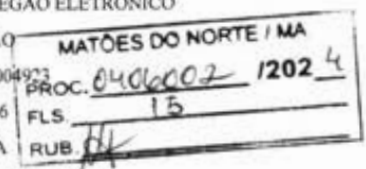 PREGÃO ELETRÔNICO
MATÕES DO NORTE / MA
PROC. 0406002 /2024
FLS. 15
RUB.